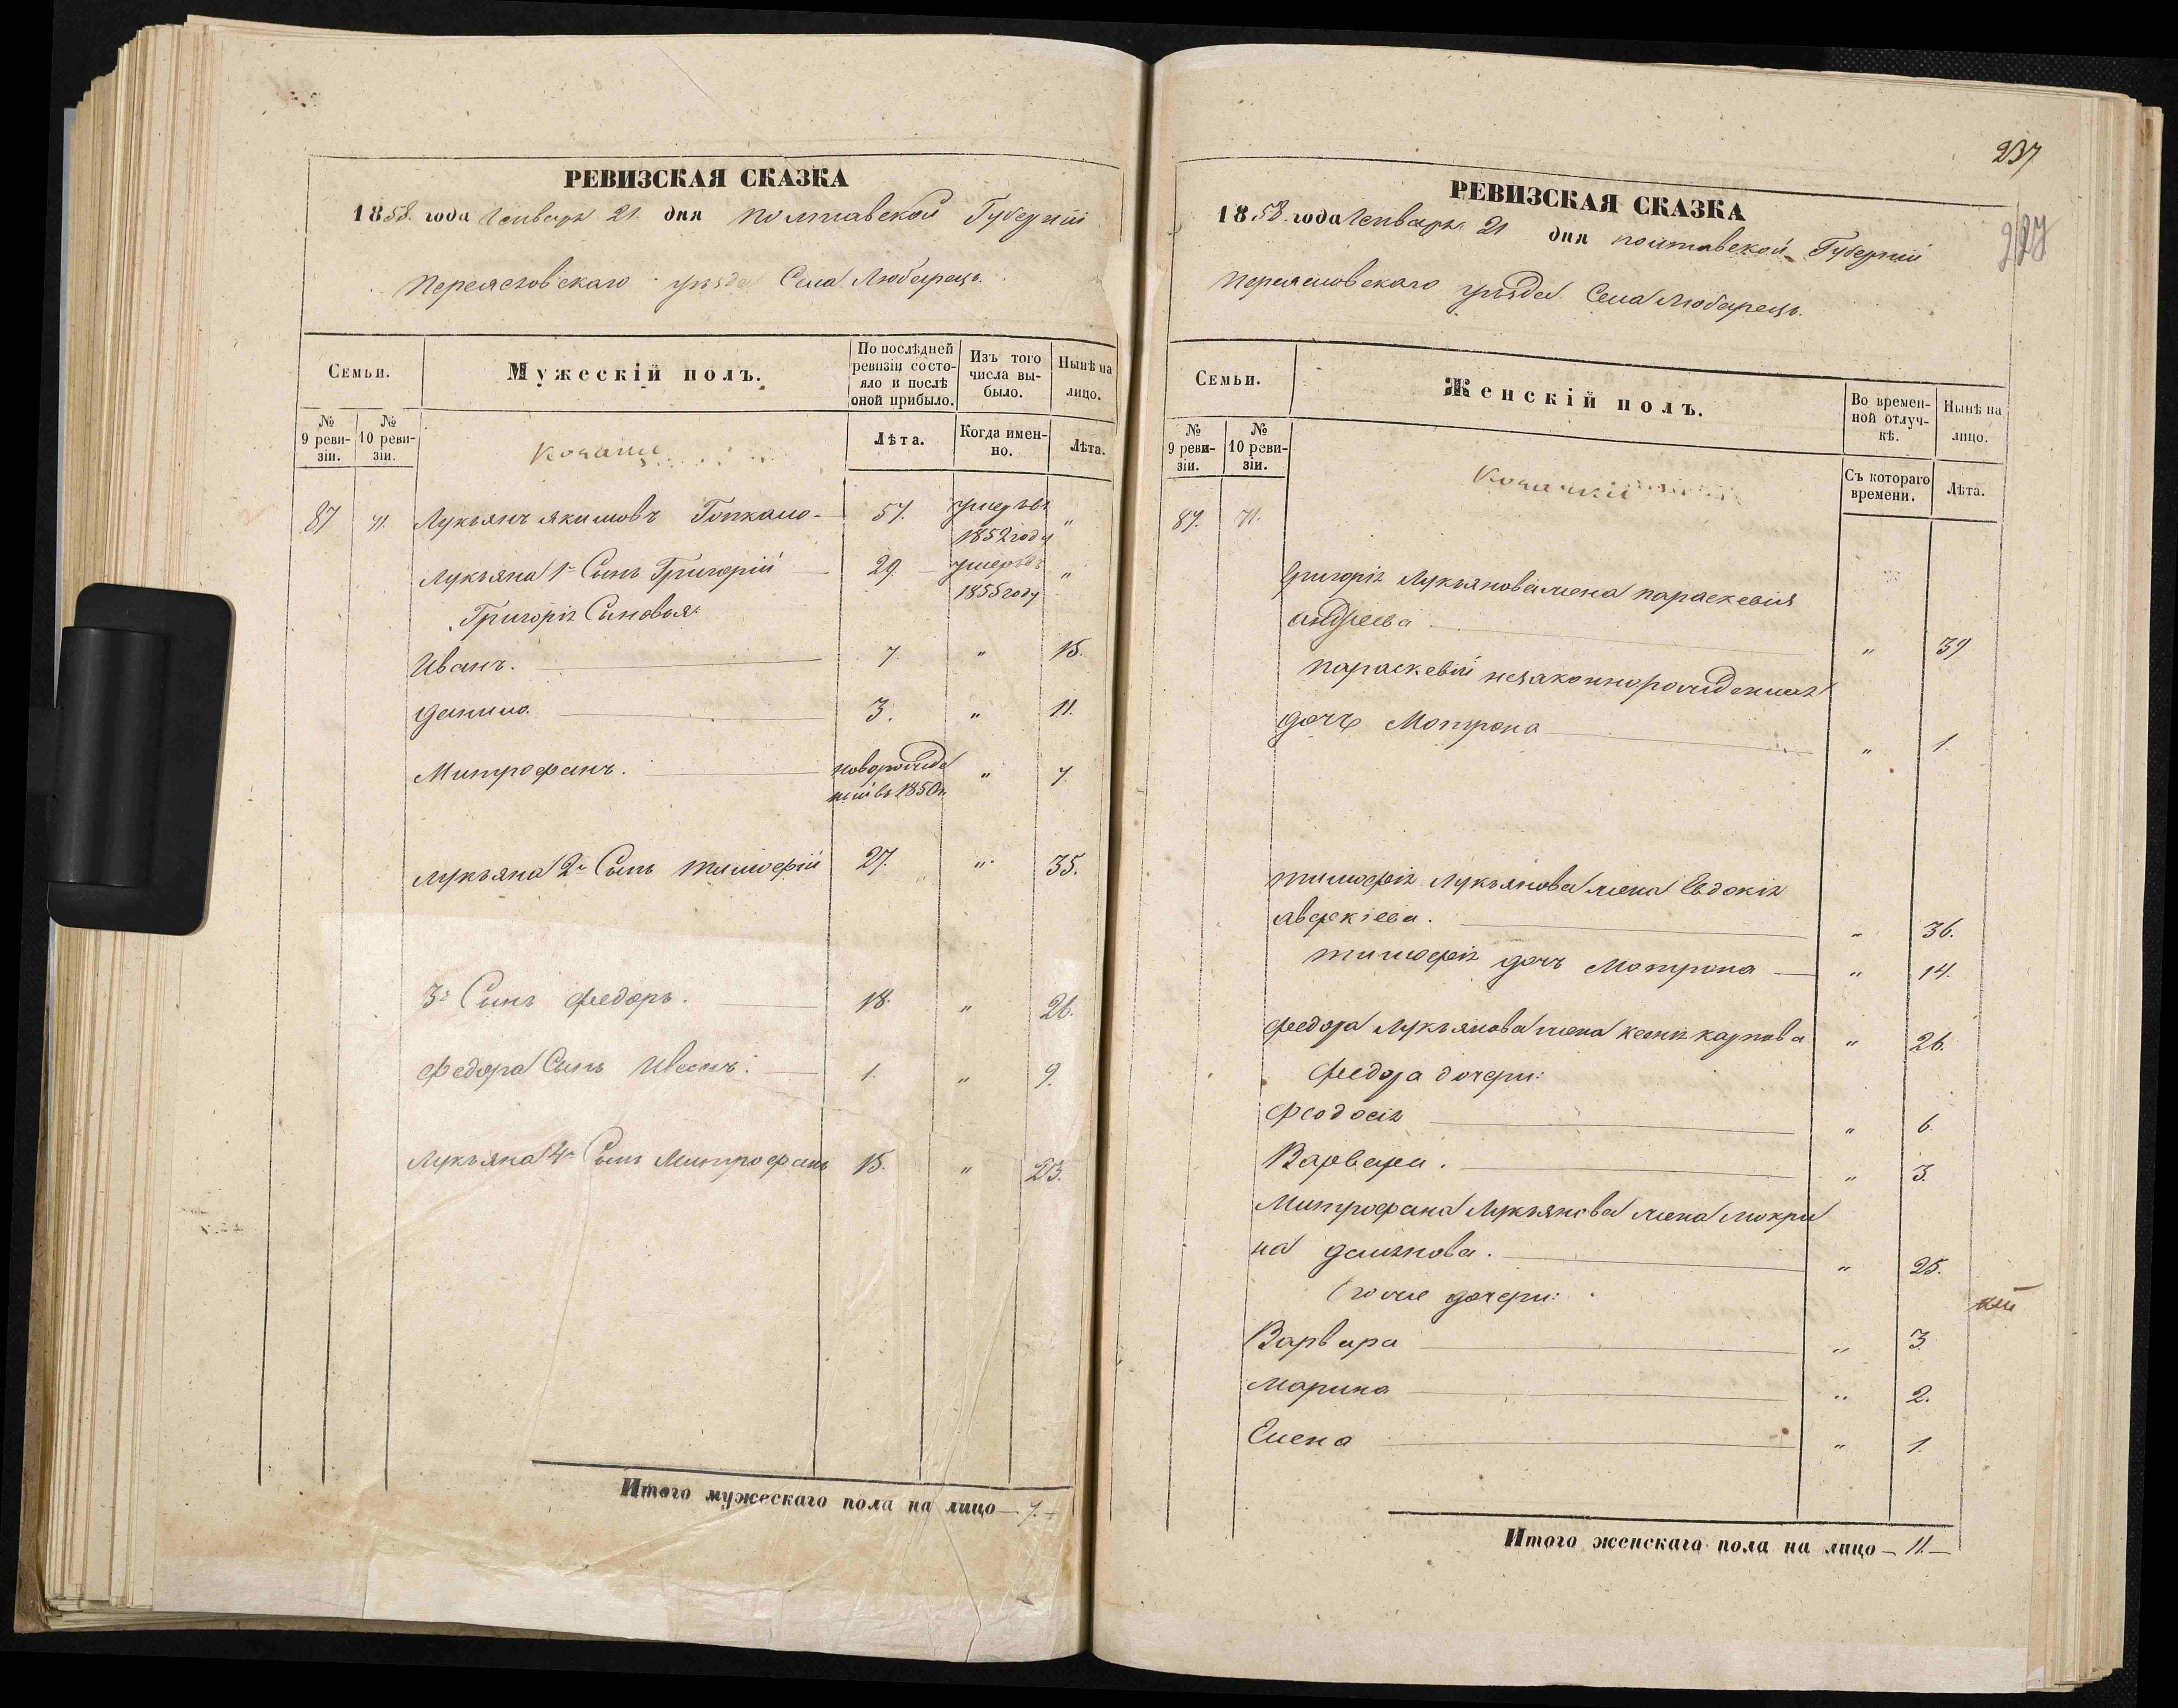 РЕВИЗСКАЯ СКАЗКА
1858. года Генваря 21. дня Полтавской Губерніи
Переясловскаго уѣзда Села Любарецъ.
Семьи.
Мужескій полъ.
По послѣдней ревизіи состояло и послѣ оной прибыло.
Изъ того числа выбыло.
Нынѣ на лицо.
№ 9 ревизіи.
№ 10 ревизіи.
Козаки
Лѣта.
Когда именно.
Лѣта.
87 71. Лукьянъ Якимовъ 57. умеръ въ 1852 году "
Лукьяна 1й Сынъ Григорій 29. умеръ въ 1855 году "
Григорія Сыновья:
Иванъ. 7. " 15.
Данило. 3. " 11.
Митрофанъ. новорожденій въ 1850 г. " 7.
Лукьяна 2й Сынъ Тимофій 27. " 35.
3й Сынъ Федоръ. 18. " 26.
Федора Сынъ Иванъ. 1. " 9.
Лукьяна 4й Сынъ Митрофанъ 15. " 23.
Итого мужескаго пола на лицо — 7. —
237
227
РЕВИЗСКАЯ СКАЗКА
1858. года Генваря 21 дня Полтавской Губерніи
Переясловскаго уѣзда Села Любарецъ.
Семьи.
Женскій полъ.
Во временной отлучкѣ.
Нынѣ на лицо.
№ 9 ревизіи.
№ 10 ревизіи.
Козачки
Съ котораго времени.
Лѣта.
87. 71.
Григорія Лукьянова жена Параскевія
Андреева " 39
Параскевіи незаконнорожденная
дочь Мотрона " 1.
Тимофія Лукьянова жена Евдокія
Аверкіева. " 36.
Тимофія дочь Мотрона " 14.
Федора Лукьянова жена Ксенія Карпова " 26.
Федора дочери:
Феодосія " 6.
Варвара. " 3.
Митрофана Лукьянова жена Мокри
на Даміянова. " 25.
его же дочери:
Варвара " 3.
Марина " 2.
Елена " 1.
Итого женскаго пола на лицо — 11. —